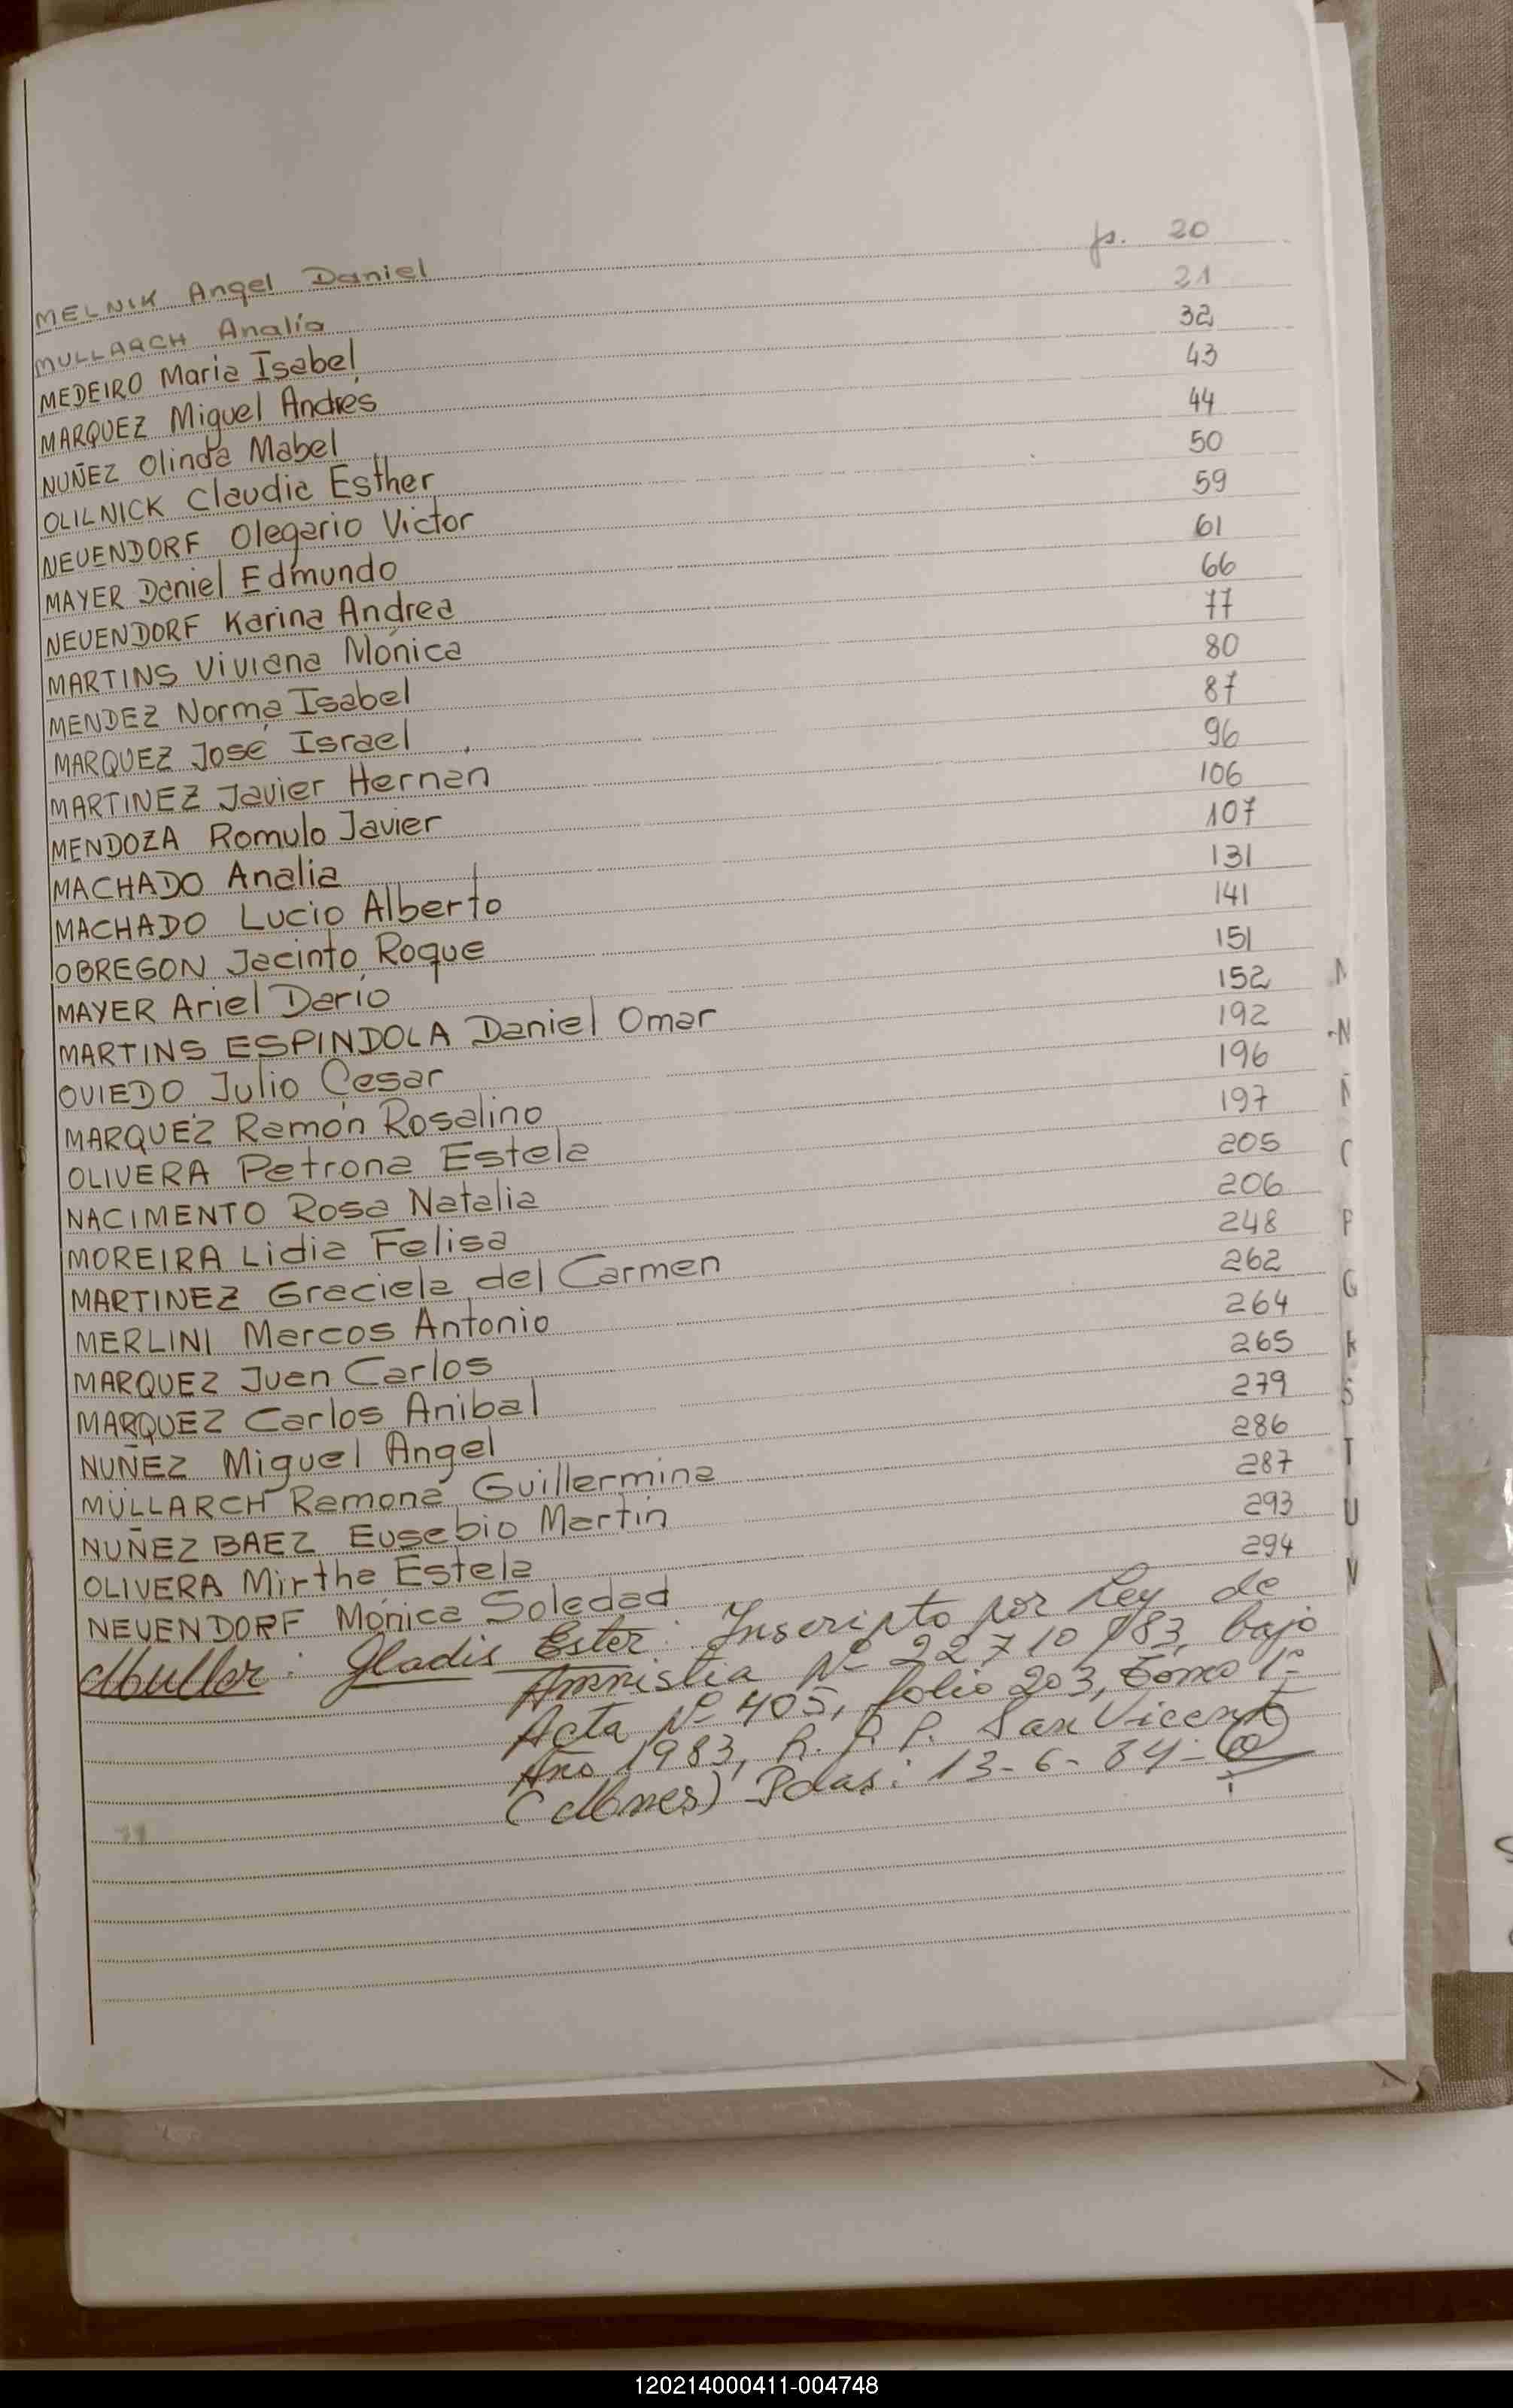 MELNIK Angel Daniel fs. 20
MULLARCH Analía 21
MEDEIRO Maria Isabel 32
MARQUEZ Miguel Andrés 43
NUÑEZ Olinda Mabel 44
OLILNICK Claudia Esther 50
NEUENDORF Olegario Victor 59
MAYER Daniel Edmundo 61
NEUENDORF Karina Andrea 66
MARTINS Viviana Mónica 77
MENDEZ Norma Isabel 80
MARQUEZ José Israel 87
MARTINEZ Javier Hernan 96
MENDOZA Romulo Javier 106
MACHADO Analia 107
MACHADO Lucio Alberto 131
OBREGON Jacinto Roque 141
MAYER Ariel Darío 151
MARTINS ESPINDOLA Daniel Omar 152
OVIEDO Julio Cesar 192
MARQUEZ Ramón Rosalino 196
OLIVERA Petrona Estela 197
NACIMENTO Rosa Natalia 205
MOREIRA Lidia Felisa 206
MARTINEZ Graciela del Carmen 248
MERLINI Marcos Antonio 262
MARQUEZ Juan Carlos 264
MARQUEZ Carlos Anibal 265
NUÑEZ Miguel Angel 279
MÜLLARCH Ramona Guillermina 286
NUÑEZ BAEZ Eusebio Martín 287
OLIVERA Mirtha Estela 293
NEUENDORF Mónica Soledad 294
Muller: Gladis Ester: Inscripto por Ley de
Amnistia Nº 22710/83, bajo
Acta Nº 405, folio 203, Tomo 1º
Año 1983, R. P. P. San Vicente
(Mnes) Pdas: 13-6-84-
N
P
G
S
T
U
V
120214000411-004748